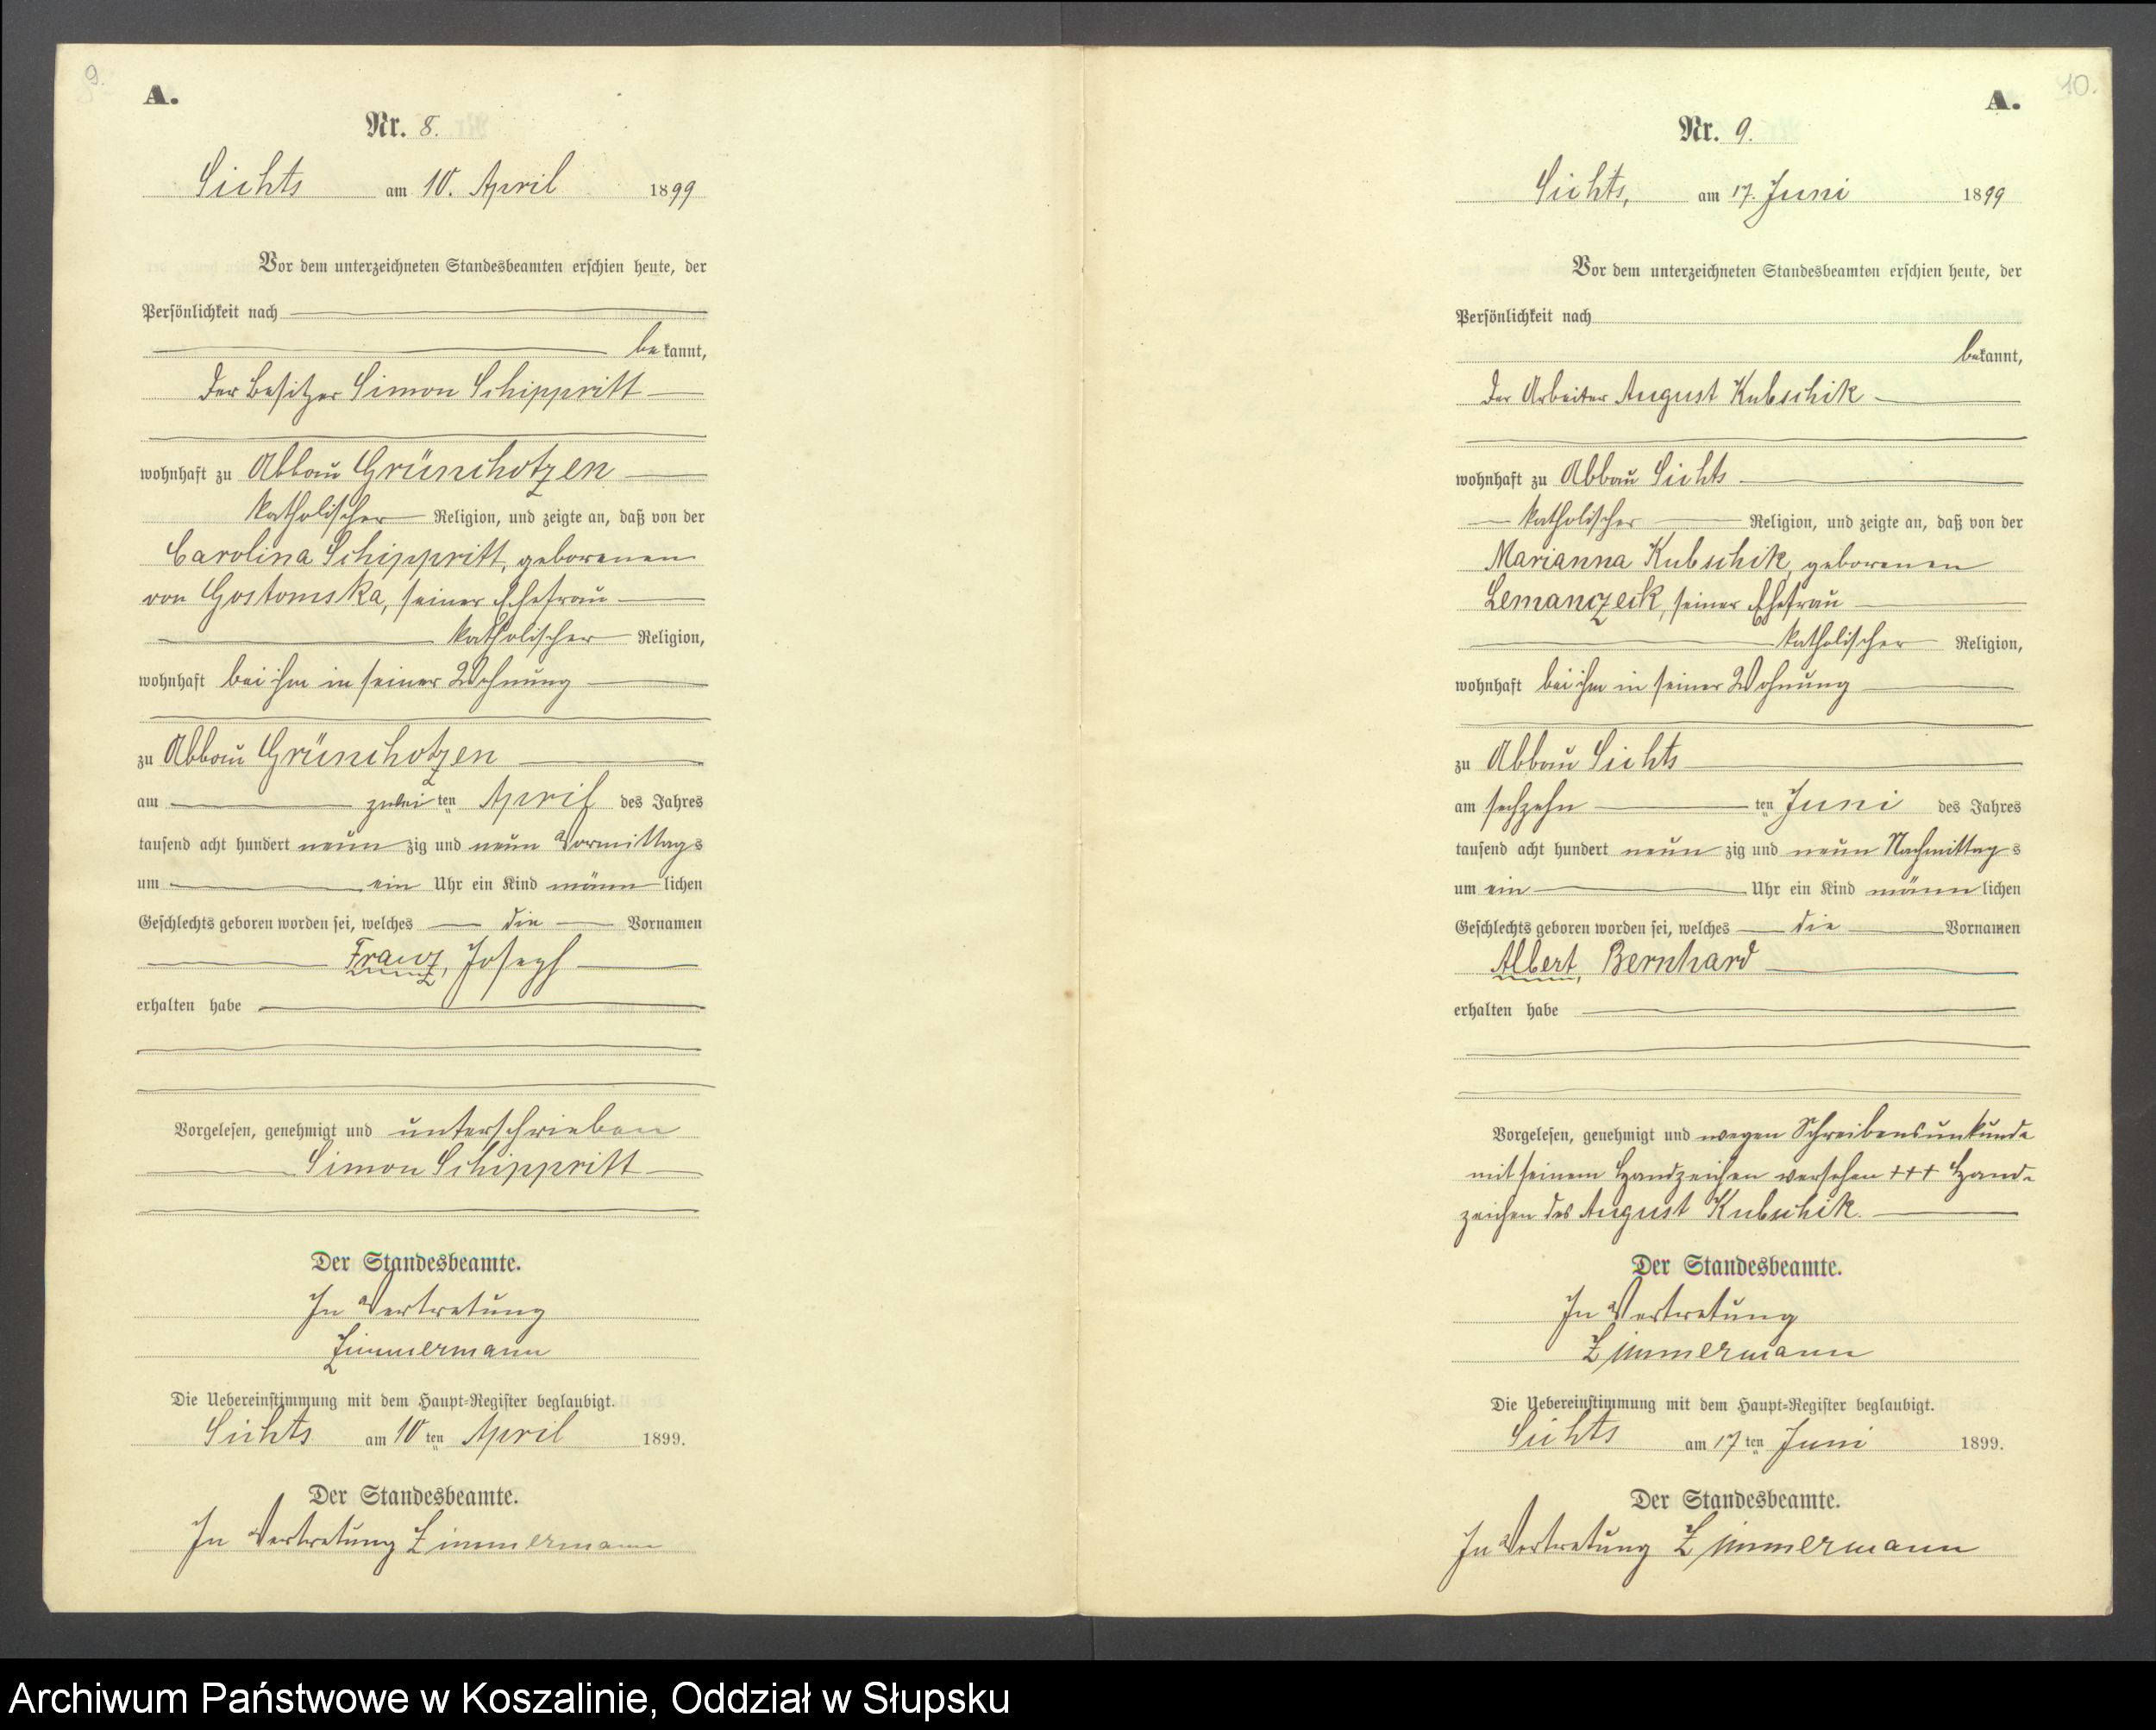 9.
A.
Nr. 8.
Sichts am 10. April 1899
Vor dem unterzeichneten Standesbeamten erschien heute, der
Persönlichkeit nach
bekannt,
der Besitzer Simon Schippritt
wohnhaft zu Abbau Grünchotzen
katholischer Religion, und zeigte an, daß von der
Carolina Schippritt, geborenen
von Gostomska, seiner Ehefrau
katholischer Religion,
wohnhaft bei ihm in seiner Wohnung
zu Abbau Grünchotzen
am zweiten April des Jahres
tausend acht hundert neunzig und neun Vormittags
um ein Uhr ein Kind männlichen
Geschlechts geboren worden sei, welches die Vornamen
Franz, Joseph
erhalten habe
Vorgelesen, genehmigt und unterschrieben
Simon Schippritt
Der Standesbeamte.
In Vertretung
Zimmermann
Die Uebereinstimmung mit dem Haupt-Register beglaubigt.
Sichts am 10ten April 1899.
Der Standesbeamte.
In Vertretung Zimmermann
10.
A.
Nr. 9.
Sichts, am 17. Juni 1899
Vor dem unterzeichneten Standesbeamten erschien heute, der
Persönlichkeit nach
bekannt,
der Arbeiter August Kubschik
wohnhaft zu Abbau Sichts
katholischer Religion, und zeigte an, daß von der
Marianna Kubschik, geborenen
Lemanczeck, seiner Ehefrau
katholischer Religion,
wohnhaft bei ihm in seiner Wohnung
zu Abbau Sichts
am sechzehnten Juni des Jahres
tausend acht hundert neunzig und neun Nachmittags
um ein Uhr ein Kind männlichen
Geschlechts geboren worden sei, welches die Vornamen
Albert, Bernhard
erhalten habe
Vorgelesen, genehmigt und wegen Schreibensunkunde
mit seinem Handzeichen versehen +++ Hand-
zeichen des August Kubschik.
Der Standesbeamte.
In Vertretung
Zimmermann
Die Uebereinstimmung mit dem Haupt-Register beglaubigt.
Sichts am 17ten Juni 1899.
Der Standesbeamte.
In Vertretung Zimmermann
Archiwum Państwowe w Koszalinie, Oddział w Słupsku